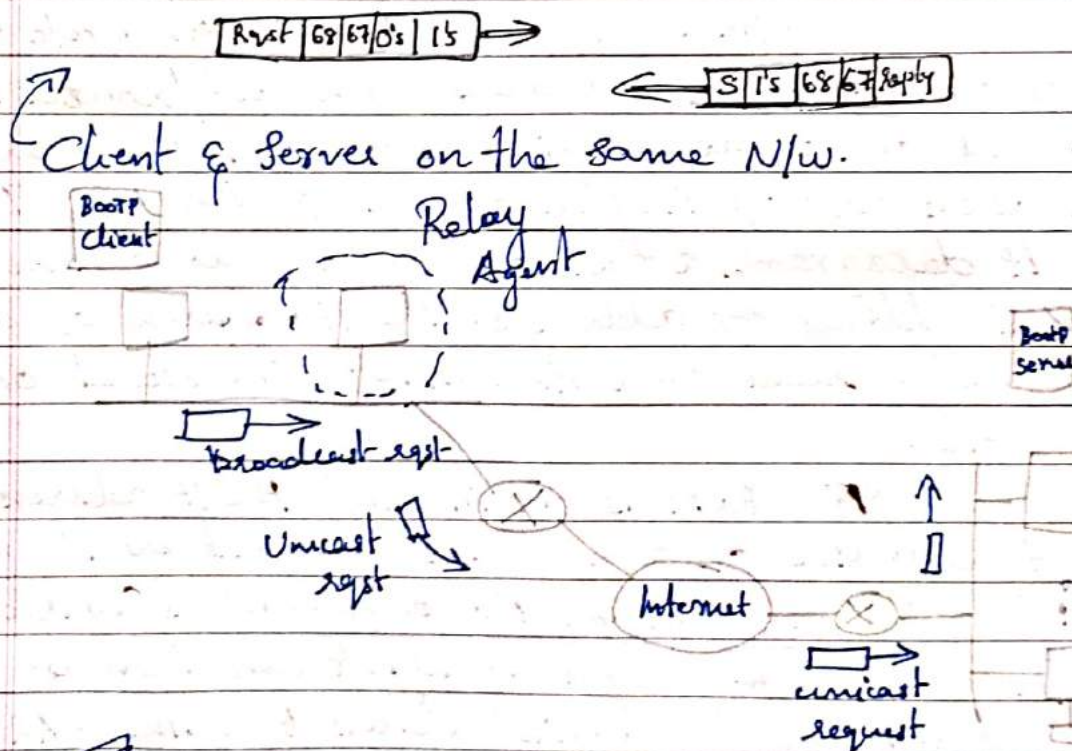 Rqst 68 67 0's 1's
S 1's 68 67 Reply
Client & Server on the same N/w.
BOOTP
Client
Relay
Agent
BootP
Broadcast rqst
Unicast
rqst
Internet
unicast
request